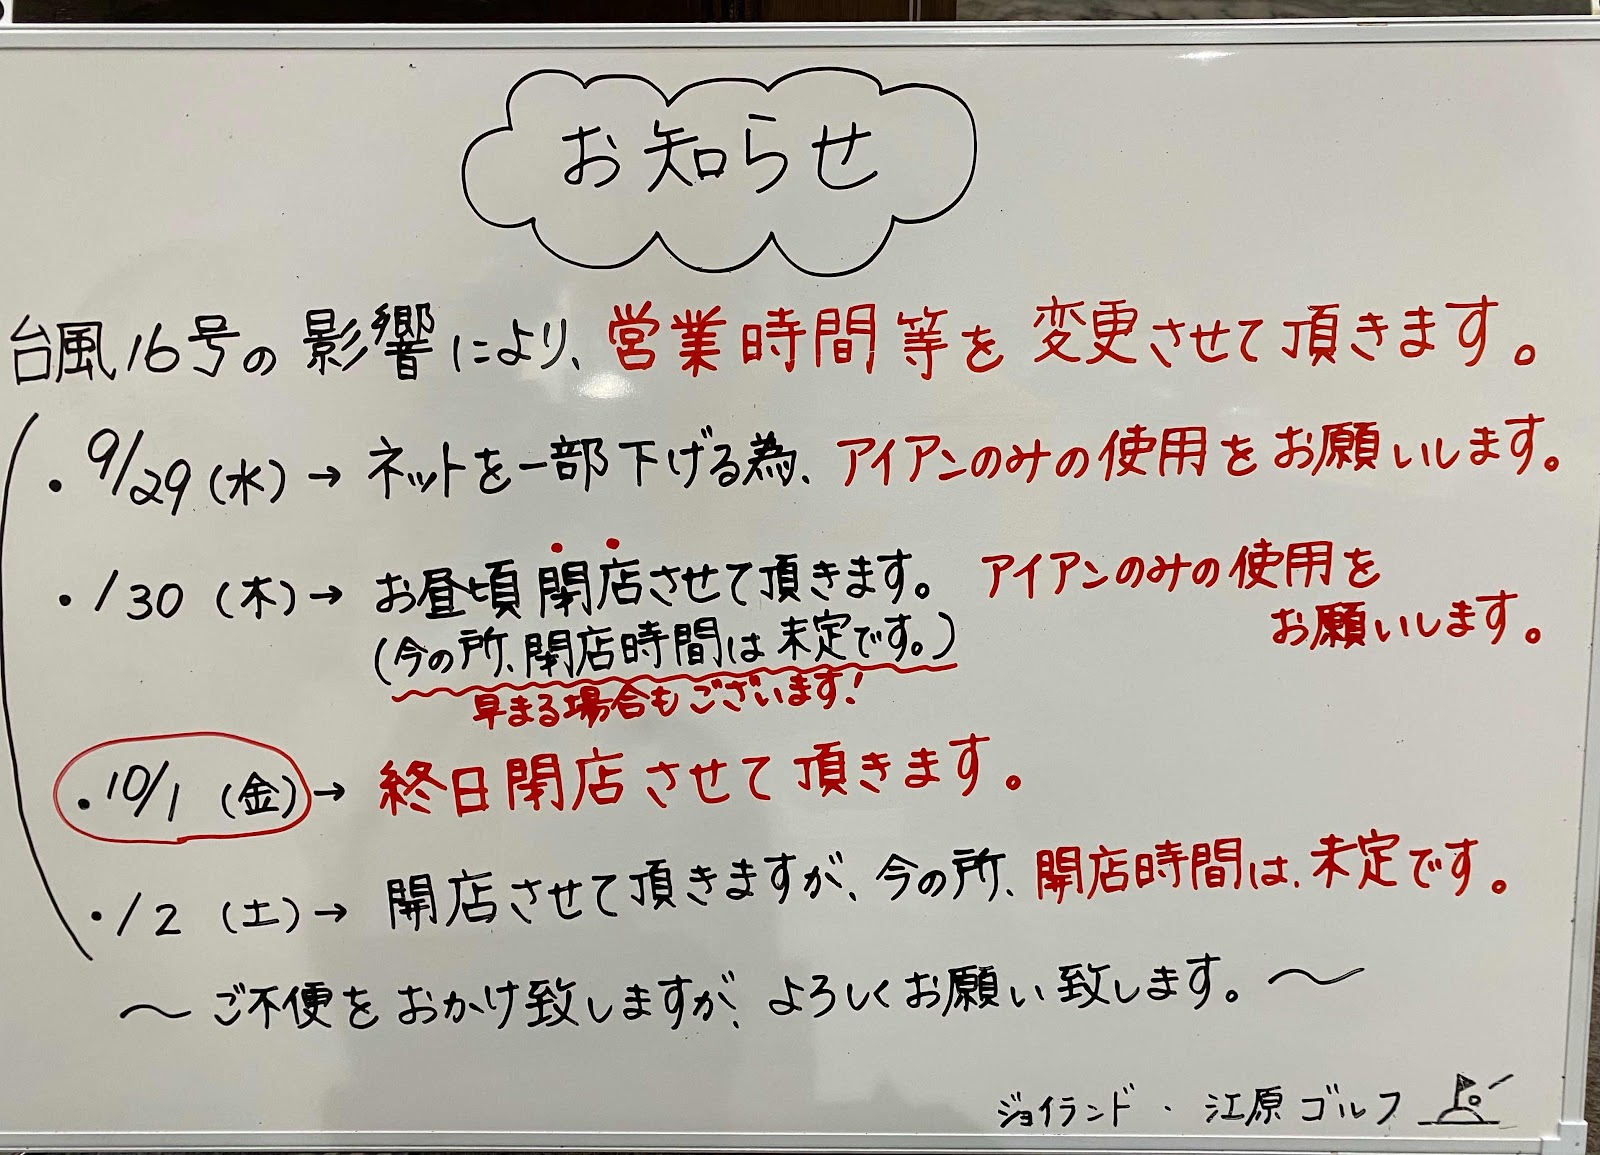 お知らせ
台風16号の影響により、営業時間等を変更させて頂きます。
・9/29(水)→ネットを一部下げる為、アイアンのみの使用をお願いします。
・/30(木)→お昼頃閉店させて頂きます。アイアンのみの使用を
お願いします。
(今の所、閉店時間は未定です。)
早まる場合もございます!
・10/1(金)→終日閉店させて頂きます。
・/2(土)→開店させて頂きますが、今の所、開店時間は、未定です。
〜ご不便をおかけ致しますが、よろしくお願い致します。〜
ジョイランド・江原ゴルフ